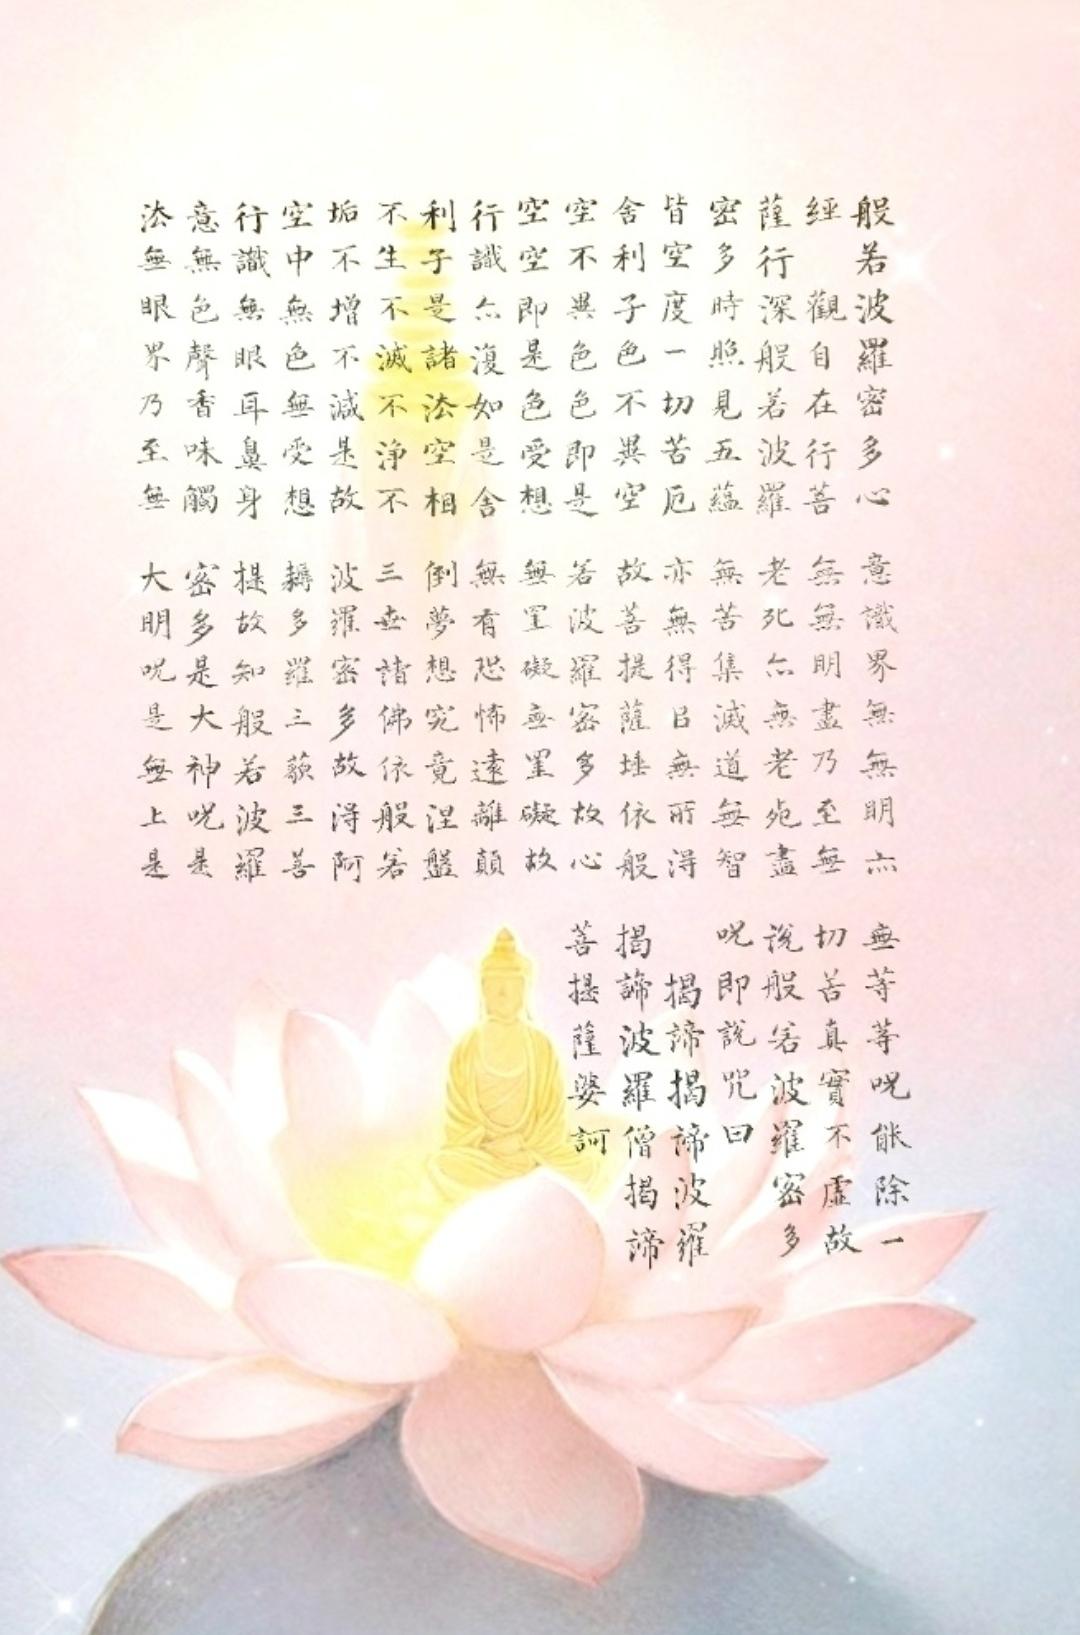 般若波羅密多心
經 觀自在行菩
薩行深般若波羅
密多時照見五蘊
皆空度一切苦厄
舍利子色不異空
空不異色色即是
空空即是色受想
行識亦復如是舍
利子是諸法空相
不生不滅不淨不
垢不增不減是故
空中無色無受想
行識無眼耳鼻身
意無色聲香味觸
法無眼界乃至無
意識界無無明亦
無無明盡乃至無
老死亦無老死盡
無苦集滅道無智
亦無得以無所得
故菩提薩埵依般
若波羅密多故心
無罣礙無罣礙故
無有恐怖遠離顛
倒夢想究竟涅盤
三世諸佛依般若
波羅密多故得阿
耨多羅三藐三菩
提故知般若波羅
密多是大神咒是
大明咒是無上是
無等等咒能除一
切苦真實不虛故
說般若波羅密多
咒即說咒曰
揭諦揭諦波羅
揭諦波羅僧揭諦
菩提薩婆訶